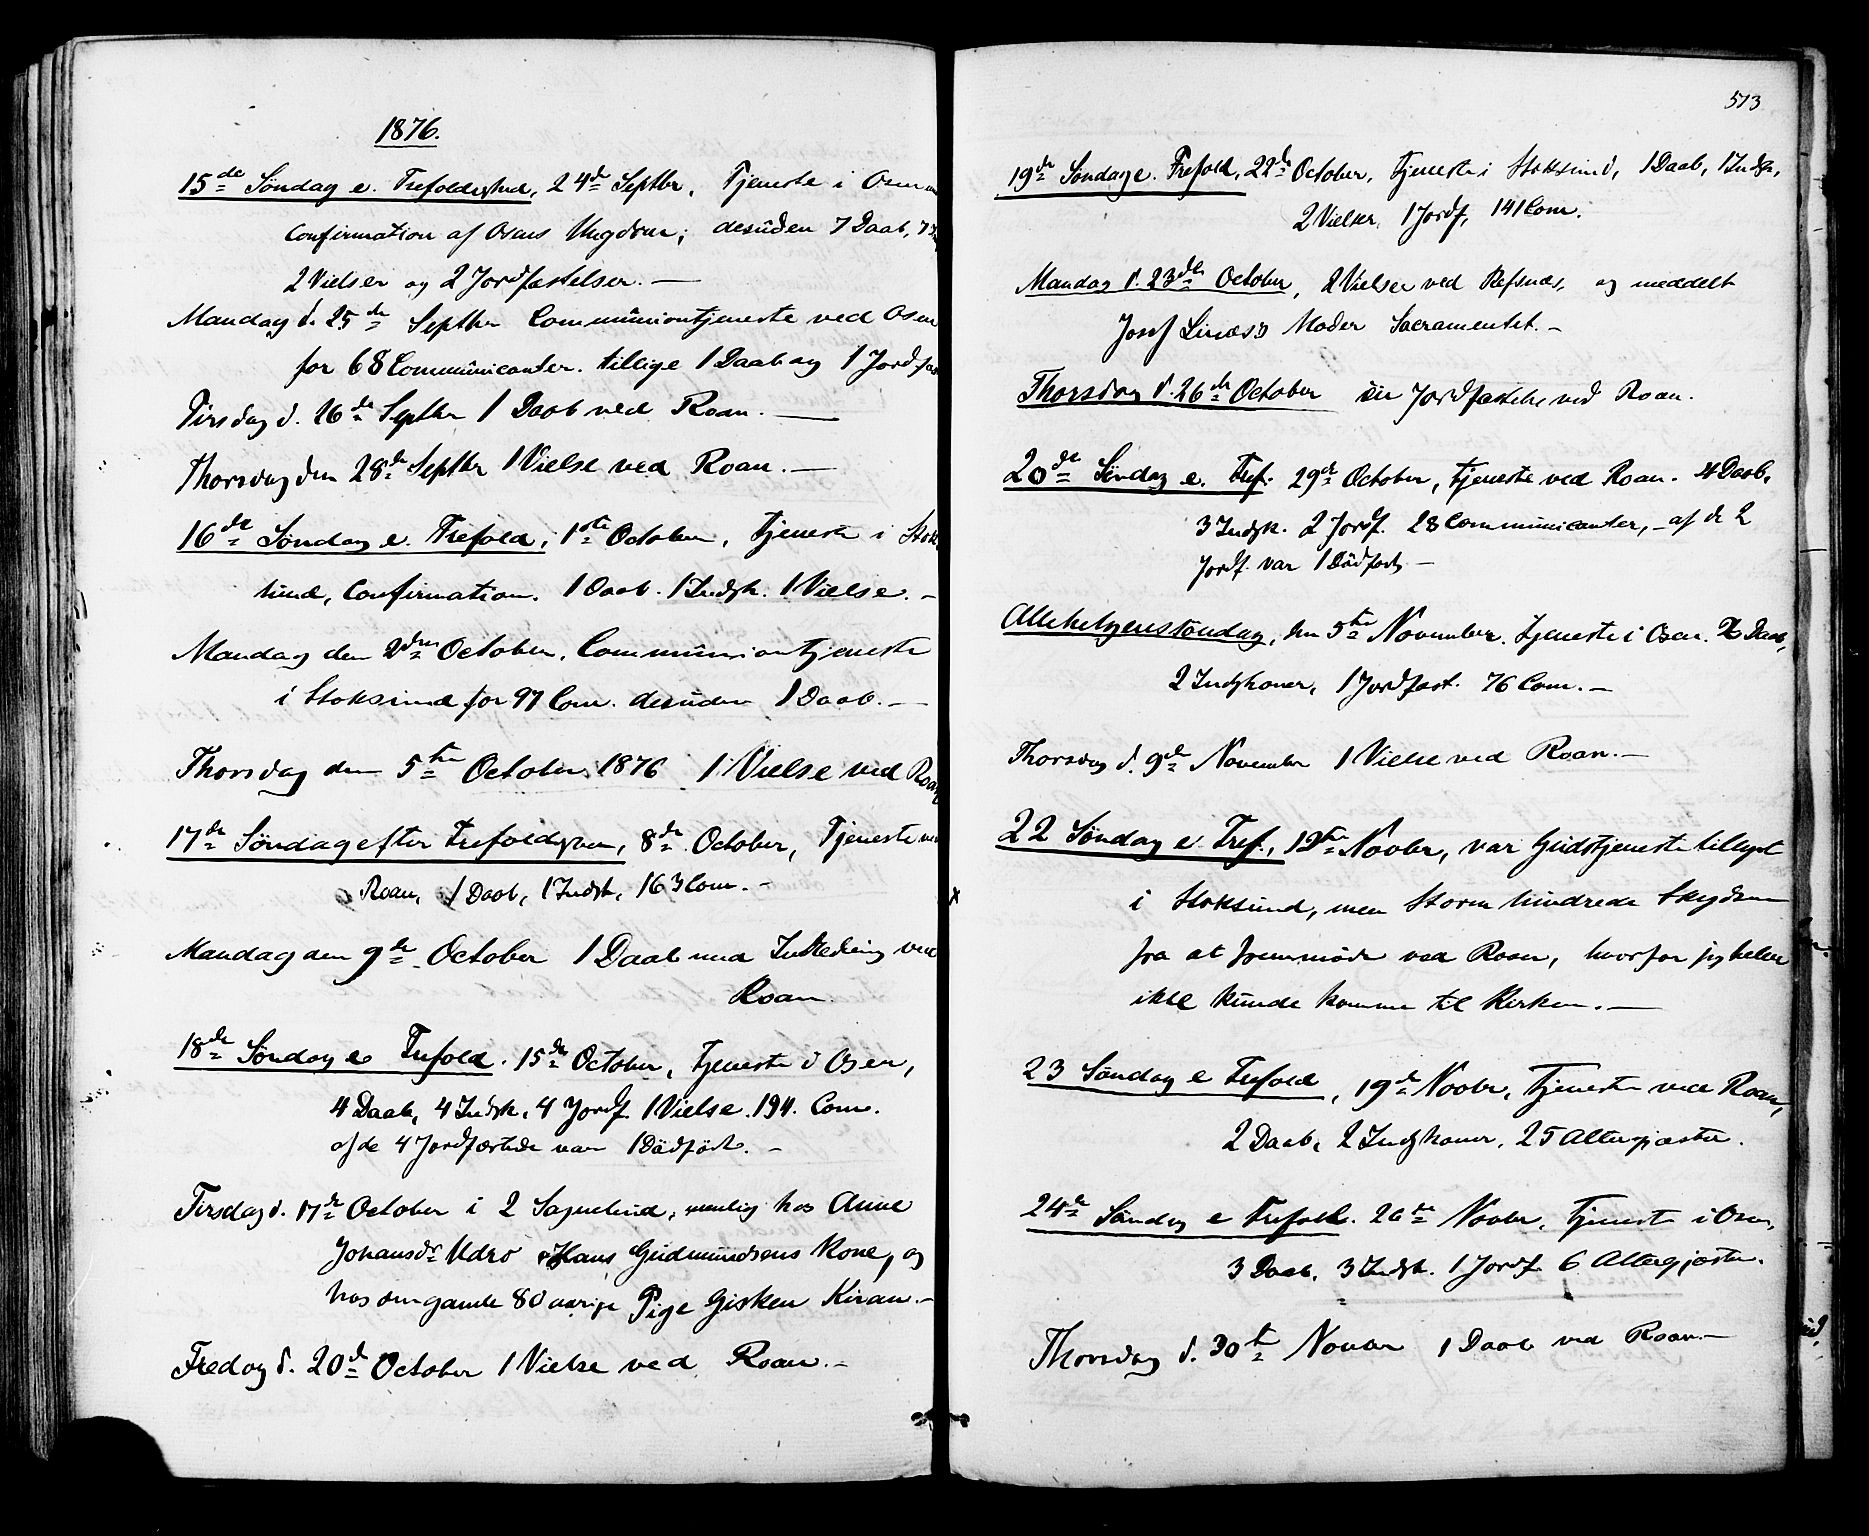 1876.
15de Søndag e. Trefoldighed, 24de Septbr, Tjeneste i Osen
Confirmation af Osens Ungdom; desuden 7 Daab, 7
2 Vielser og 2 Jordfæstelser. —
Mandag d. 25de Septbr Communiontjeneste ved Osen
for 68 Communicanter. tillige 1 Daab og 1 Jordfæs
Tirsdag d. 26de Septbr 1 Daab ved Roan. —
Thorsdag den 28de Septbr 1 Vielse ved Roan. —
16de Søndag e. Trefold, 1ste October, Tjeneste i Stok
sund, Confirmation. 1 Daab. 1 Indgk. 1 Vielse. —
Mandag den 2den October. Communiontjeneste
i Stoksund for 97 Com. desuden 1 Daab. —
Thorsdag den 5te October 1876 1 Vielse ved Roan
17de Søndag efter Trefoldighed, 8de October, Tjeneste ved
Roan, 1 Daab, 1 Indgk, 163 Com. —
Mandag den 9de October 1 Daab med Indledning ved
Roan.
18de Søndag e. Trefold. 15de October, Tjeneste i Osen,
4 Daab, 4 Indgk, 4 Jordf. 1 Vielse. 194. Com.
af de 4 Jordfæstede var 1 Dødfødt. —
Tirsdag d. 17de October i 2 Sognebud, nemlig hos Anne
Johansdr Udro Hans Gudmundsens Kone, og
hos den gamle 80 aarige Pige Gisken Kiran. —
Fredag d. 20de October 1 Vielse ved Roan. —
513
19de Søndag e. Trefold, 22de October, Tjeneste i Stoksund, 1 Daab, 1 Indgk,
2 Vielser, 1 Jordf, 141 Com.
Mandag d. 23de October, 2 Vielser ved Refsnæs, og meddelt
Josef Linæs's Moder Sacramentet. —
Thorsdag d. 26de October en Jordfæstelse ved Roan.
20de Søndag e. Tref. 29de October, Tjeneste ved Roan. 4 Daab,
3 Indgk. 2 Jordf. 28 Communicanter, — af de 2
Jordf. var 1 Dødfødt —
Allehelgenssøndag, den 5te November. Tjeneste i Osen. 2 Daab,
2 Indgkoner, 1 Jordfæst. 76 Com. —
Thorsdag d. 9de November 1 Vielse ved Roan. —
22 Søndag e. Tref., 12te Novbr, var Gudstjeneste tillyst
i Stoksund, men Storm hindrede Skydsen
fra at fremmøde ved Roan, hvorfor jeg heller
ikke kunde komme til Kirken. —
23 Søndag e Trefold, 19de Novbr, Tjeneste ved Roan,
2 Daab, 2 Indgkoner, 25 Altergjæster.
24de Søndag e Trefold. 26de Novbr, Tjeneste i Osen,
3 Daab, 3 Indgk. 1 Jordf. 6 Altergjæster.
Thorsdag d. 30te Novbr 1 Daab ved Roan. —